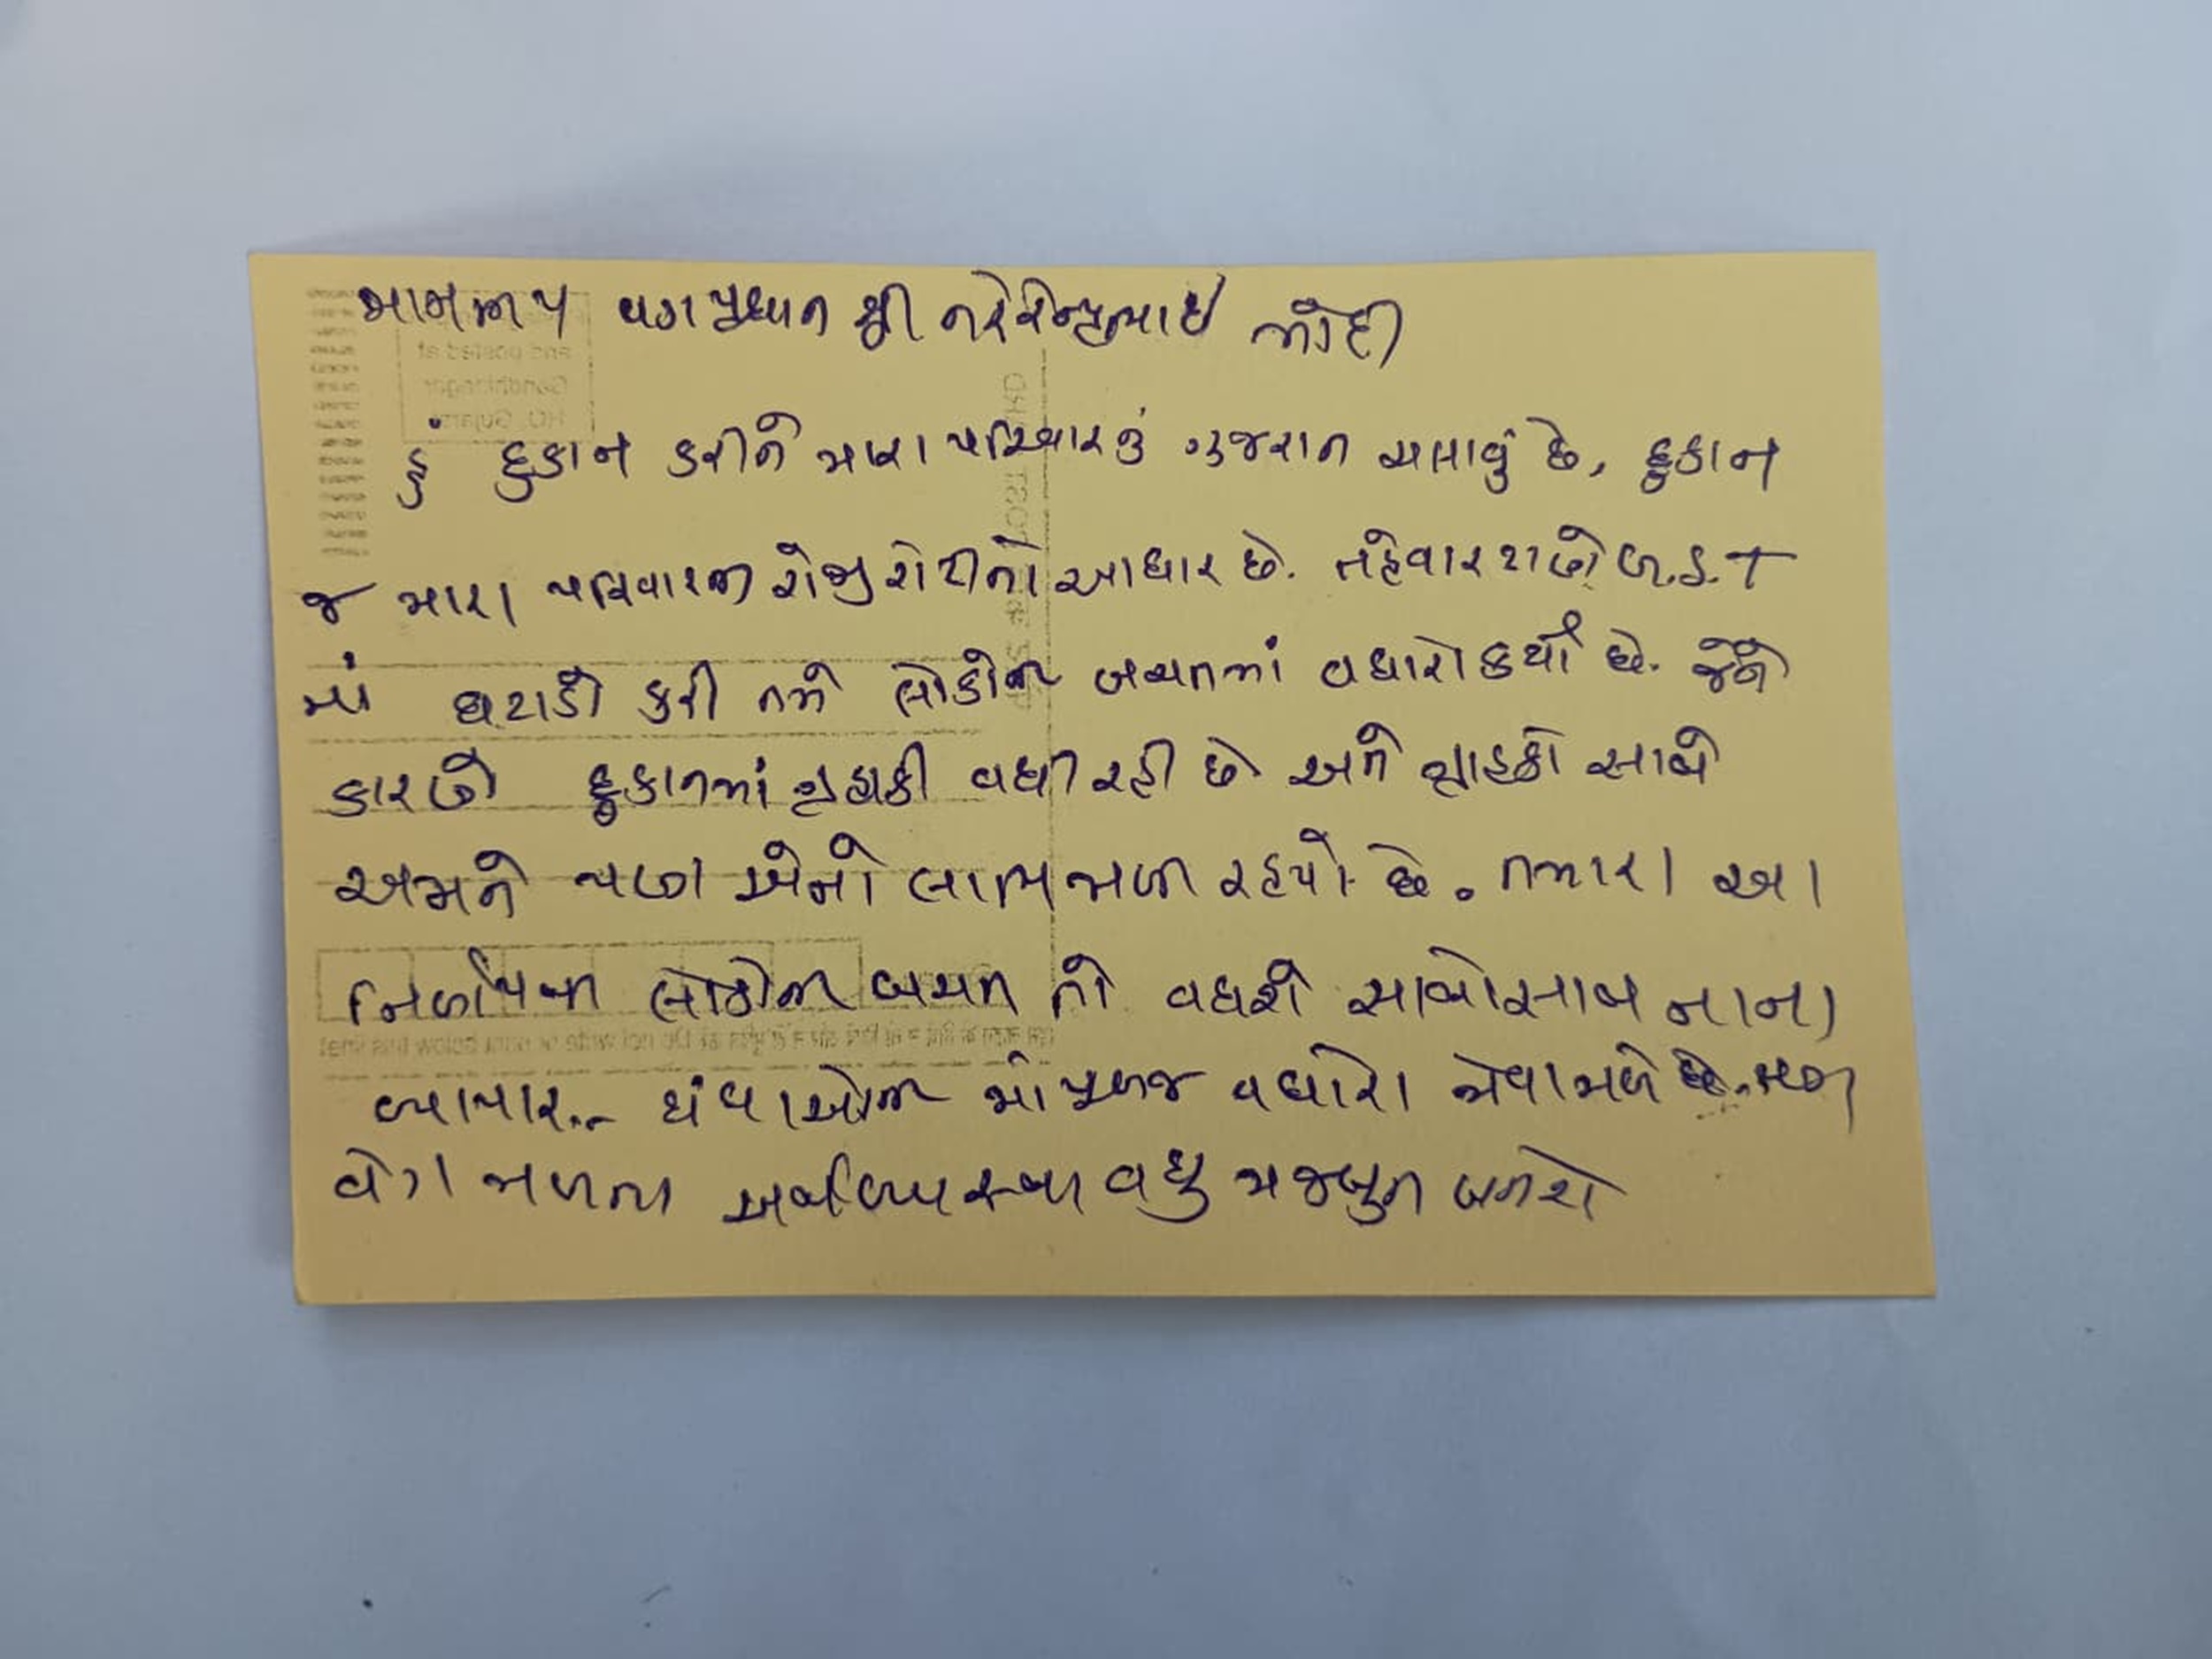 માનનીય વડાપ્રધાન શ્રી નરેન્દ્રભાઈ મોદી
હું દુકાન કરીને મારા પરિવારનું ગુજરાન ચલાવું છે, દુકાન
જ મારા પરિવારની રોજીરોટીનો આધાર છે. તહેવાર ટાણે જી.S.T
માં ઘટાડો કરી તમે લોકોની બચતમાં વધારો કર્યો છે. જેને
કારણે દુકાનમાં ગ્રાહકી વધી રહી છે અને ગ્રાહકો સાથે
અમને પણ એનો લાભ મળી રહયો છે. તમારા આ
નિર્ણયથી લોકોની બચત તો વધશે સાથોસાથ નાના
વ્યાપાર.. ધંધાઓની માં પણ જ વધારો જોવા મળે છે.
વેગ મળતા અર્થવ્યસ્થા વધુ મજબુત બનશે